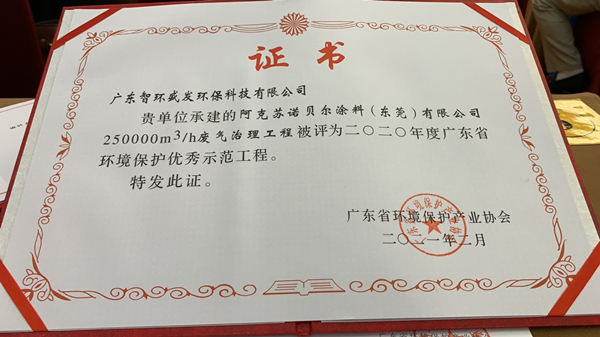 证书
广东智环盛发环保科技有限公司
贵单位承建的阿克苏诺贝尔涂料（东莞）有限公司
250000m3/h废气治理工程被评为二〇二〇年度广东省
环境保护优秀示范工程。
特发此证。
广东省环境保护产业协会
二〇二一年二月